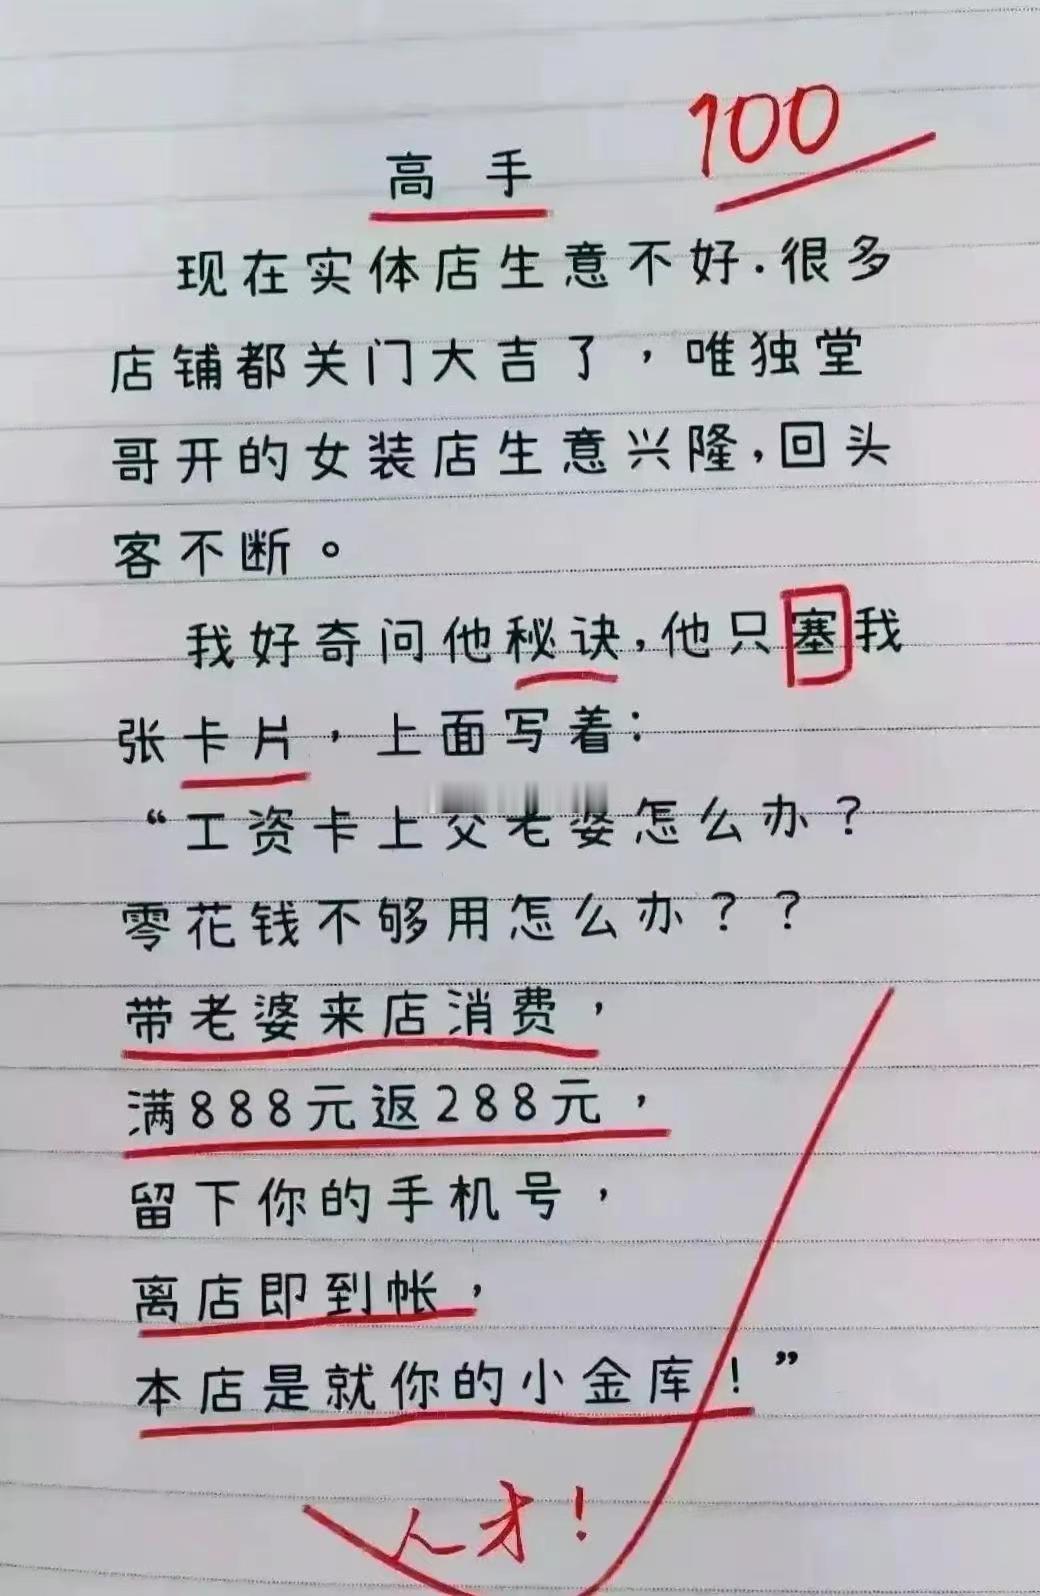 100
高手
现在实体店生意不好.很多
店铺都关门大吉了,唯独堂
哥开的女装店生意兴隆,回头
客不断。
我好奇问他秘诀,他只塞我
张卡片,上面写着:
“工资卡上交老婆怎么办?
零花钱不够用怎么办??
带老婆来店消费,
满888元返288元,
留下你的手机号,
离店即到帐,
本店是就你的小金库!”
人才!